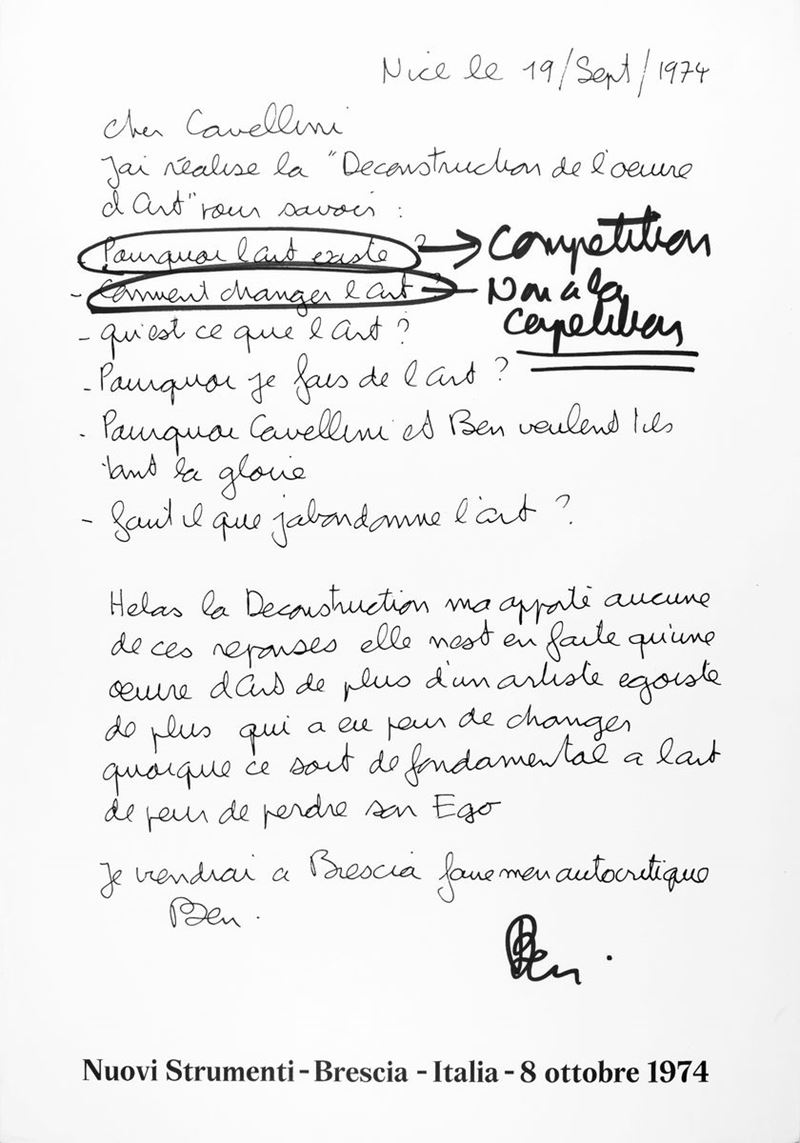 Nice le 19/Sept/1974
cher Cavellini
J'ai réalise la "Deconstruction de l'oeuvre
d'Art" pour savoir :
Pourquoi l'art existe ? → Competition
- Comment changer l'art ? - Non a la
Competition
- qu'est ce que l'art ?
- Pourquoi je fais de l'art ?
- Pourquoi Cavellini et Ben veulent ils
tant la gloire
- faut il que j'abandonne l'art ?
Helas la Deconstruction ma apporté aucune
de ces reponses elle nest en faite qu'une
oeuvre d'Art de plus d'un artiste egoiste
de plus qui a eu peur de changer
quoique ce soit de fondamental a l'art
de peur de perdre son Ego
Je viendrai a Brescia faire mon autocritique
Ben.
Ben.
Nuovi Strumenti - Brescia - Italia - 8 ottobre 1974